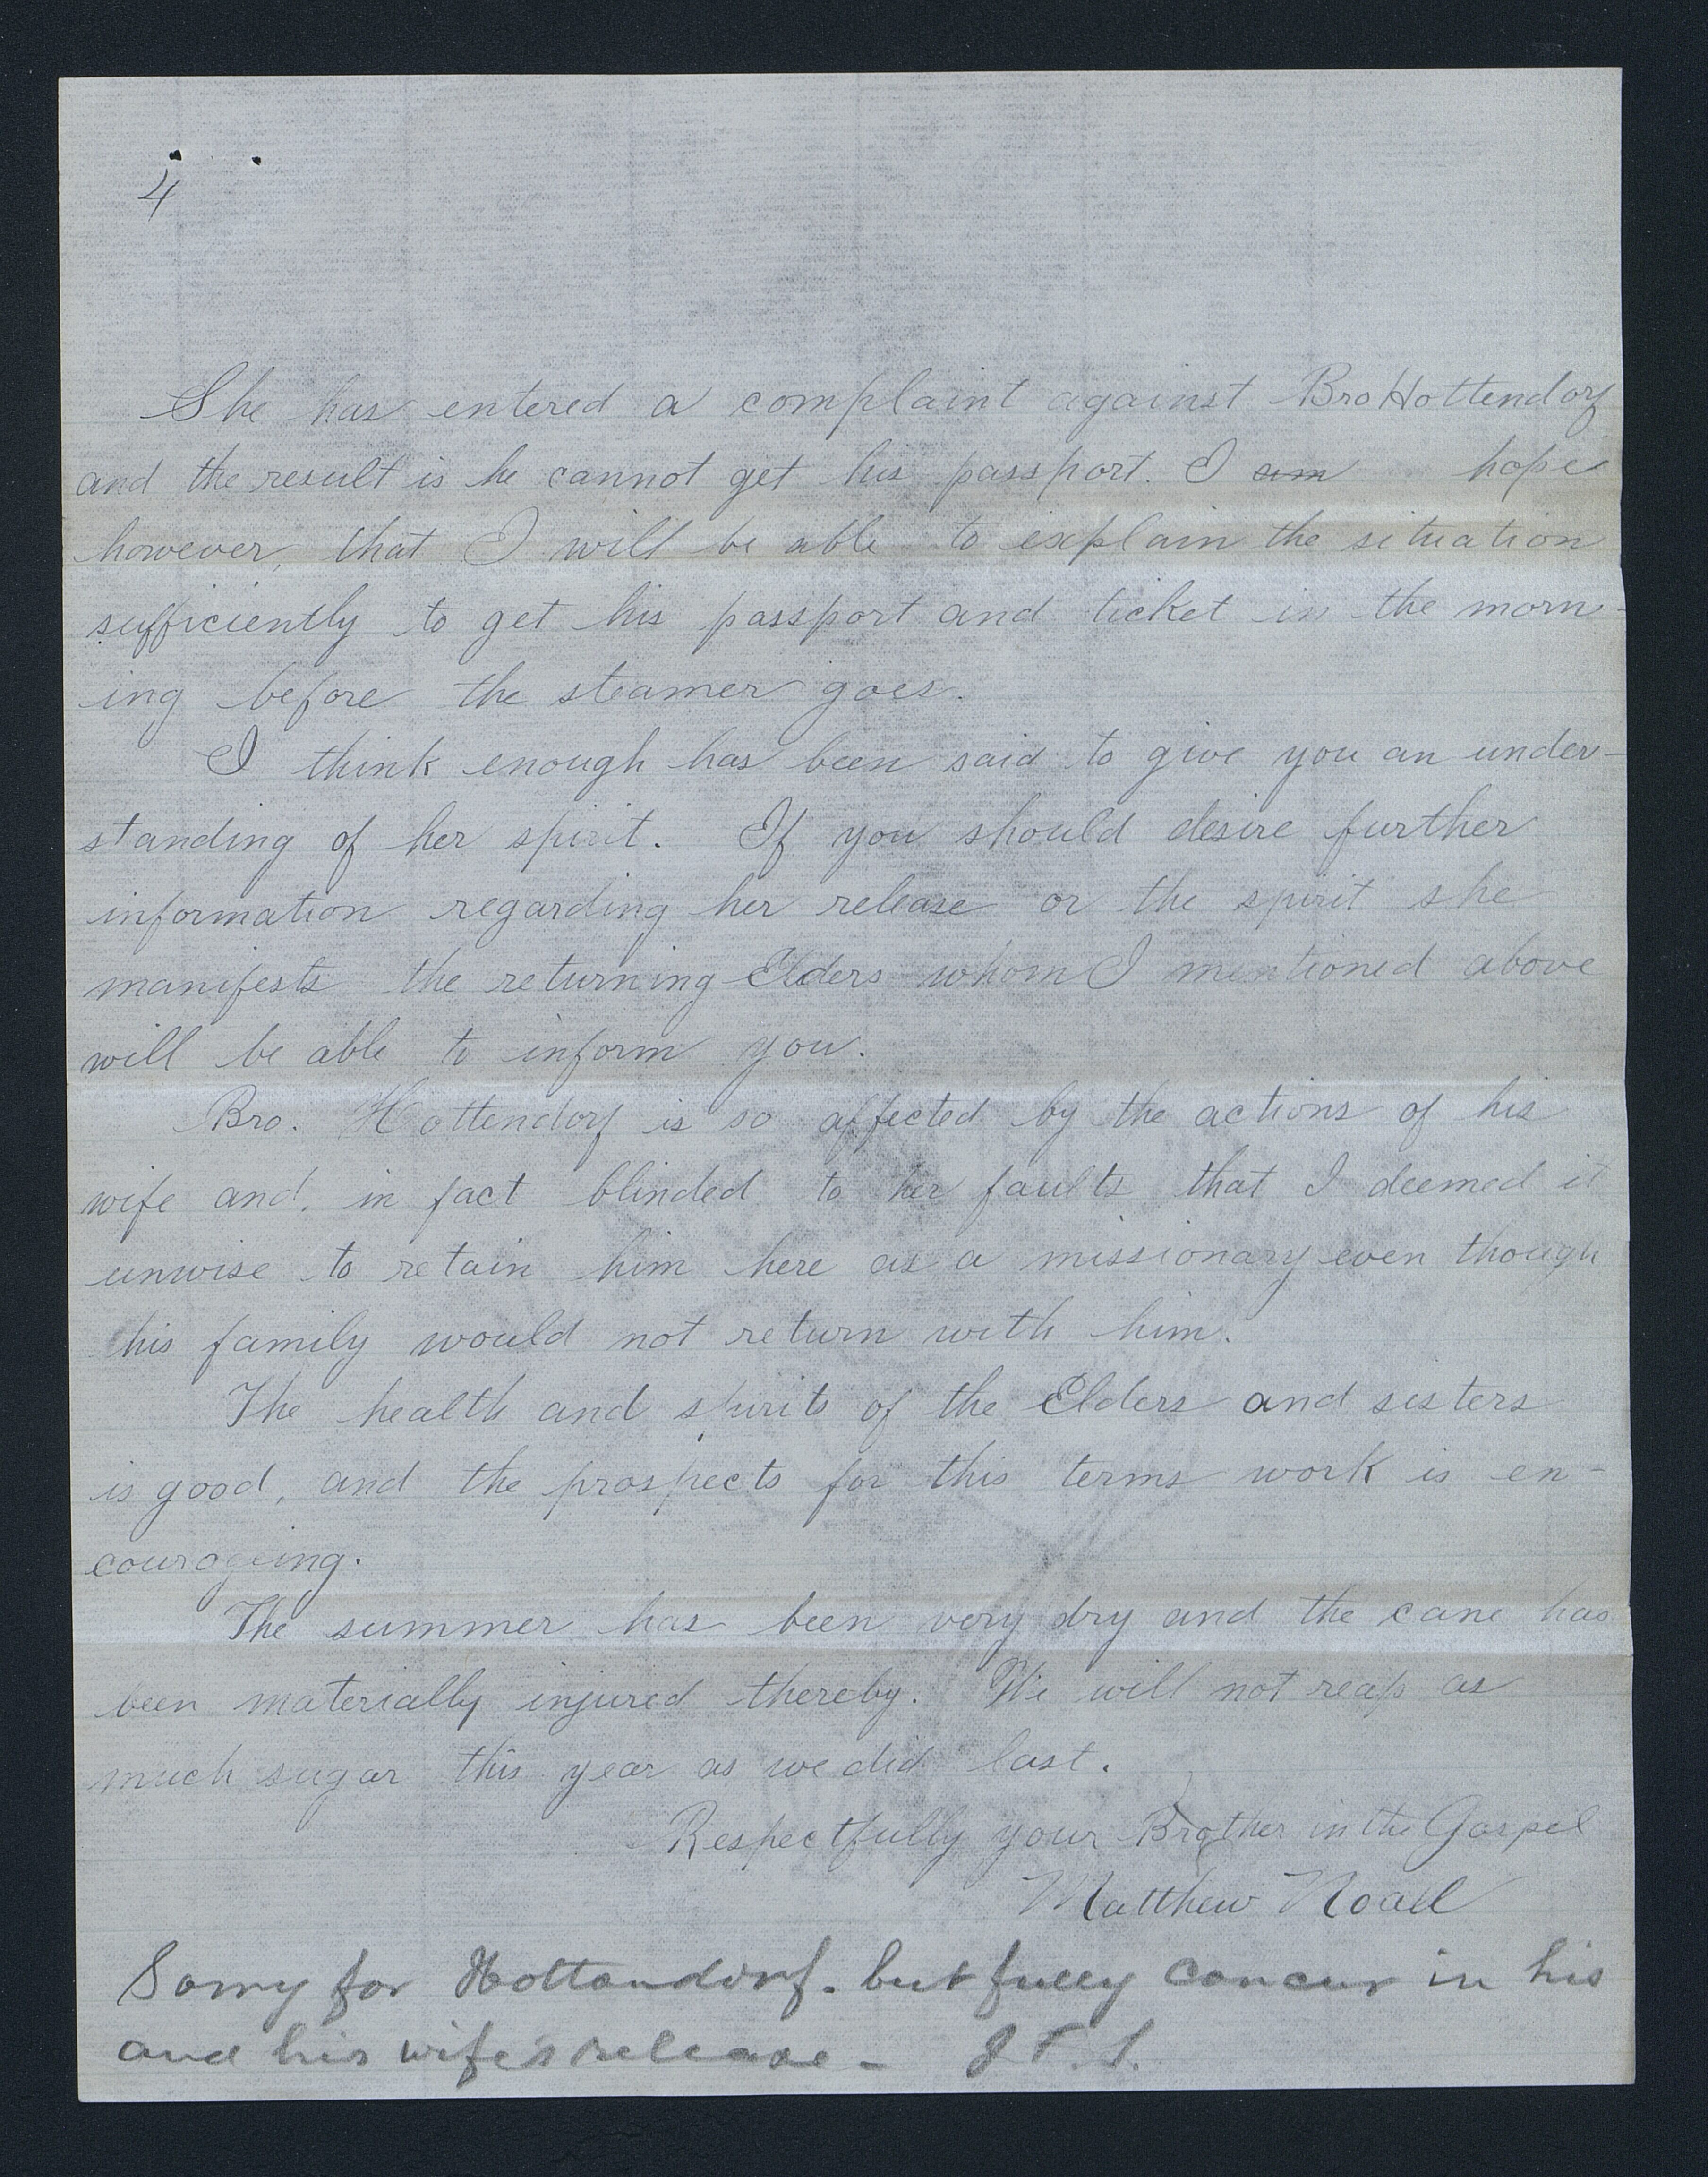 4
She has entered a complaint against Bro Hottendorf
and the result is he cannot get his passport. I am hope
however, that I will be able to explain the situation
sufficiently to get his passport and ticket in the morn-
ing before the steamer goes.
I think enough has been said to give you an under-
standing of her spirit. If you should desire further
information regarding her release or the spirit she
manifests the returning Elders whom I mentioned above
will be able to inform you.
Bro. Hottendorf is so affected by the actions of his
wife and, in fact blinded to her faults that I deemed it
unwise to retain him here as a missionary even though
his family would not return with him.
The health and spirits of the Elders and sisters
is good, and the prospects for this terms work is en-
courageing.
The summer has been very dry and the cane has
been materially injured thereby. We will not reap as
much sugar this year as we did last.
Respectfully your Brother in the Gospel
Matthew Noall
Sorry for Hottendorf. but fully concur in his
and his wife's release - J F. S.